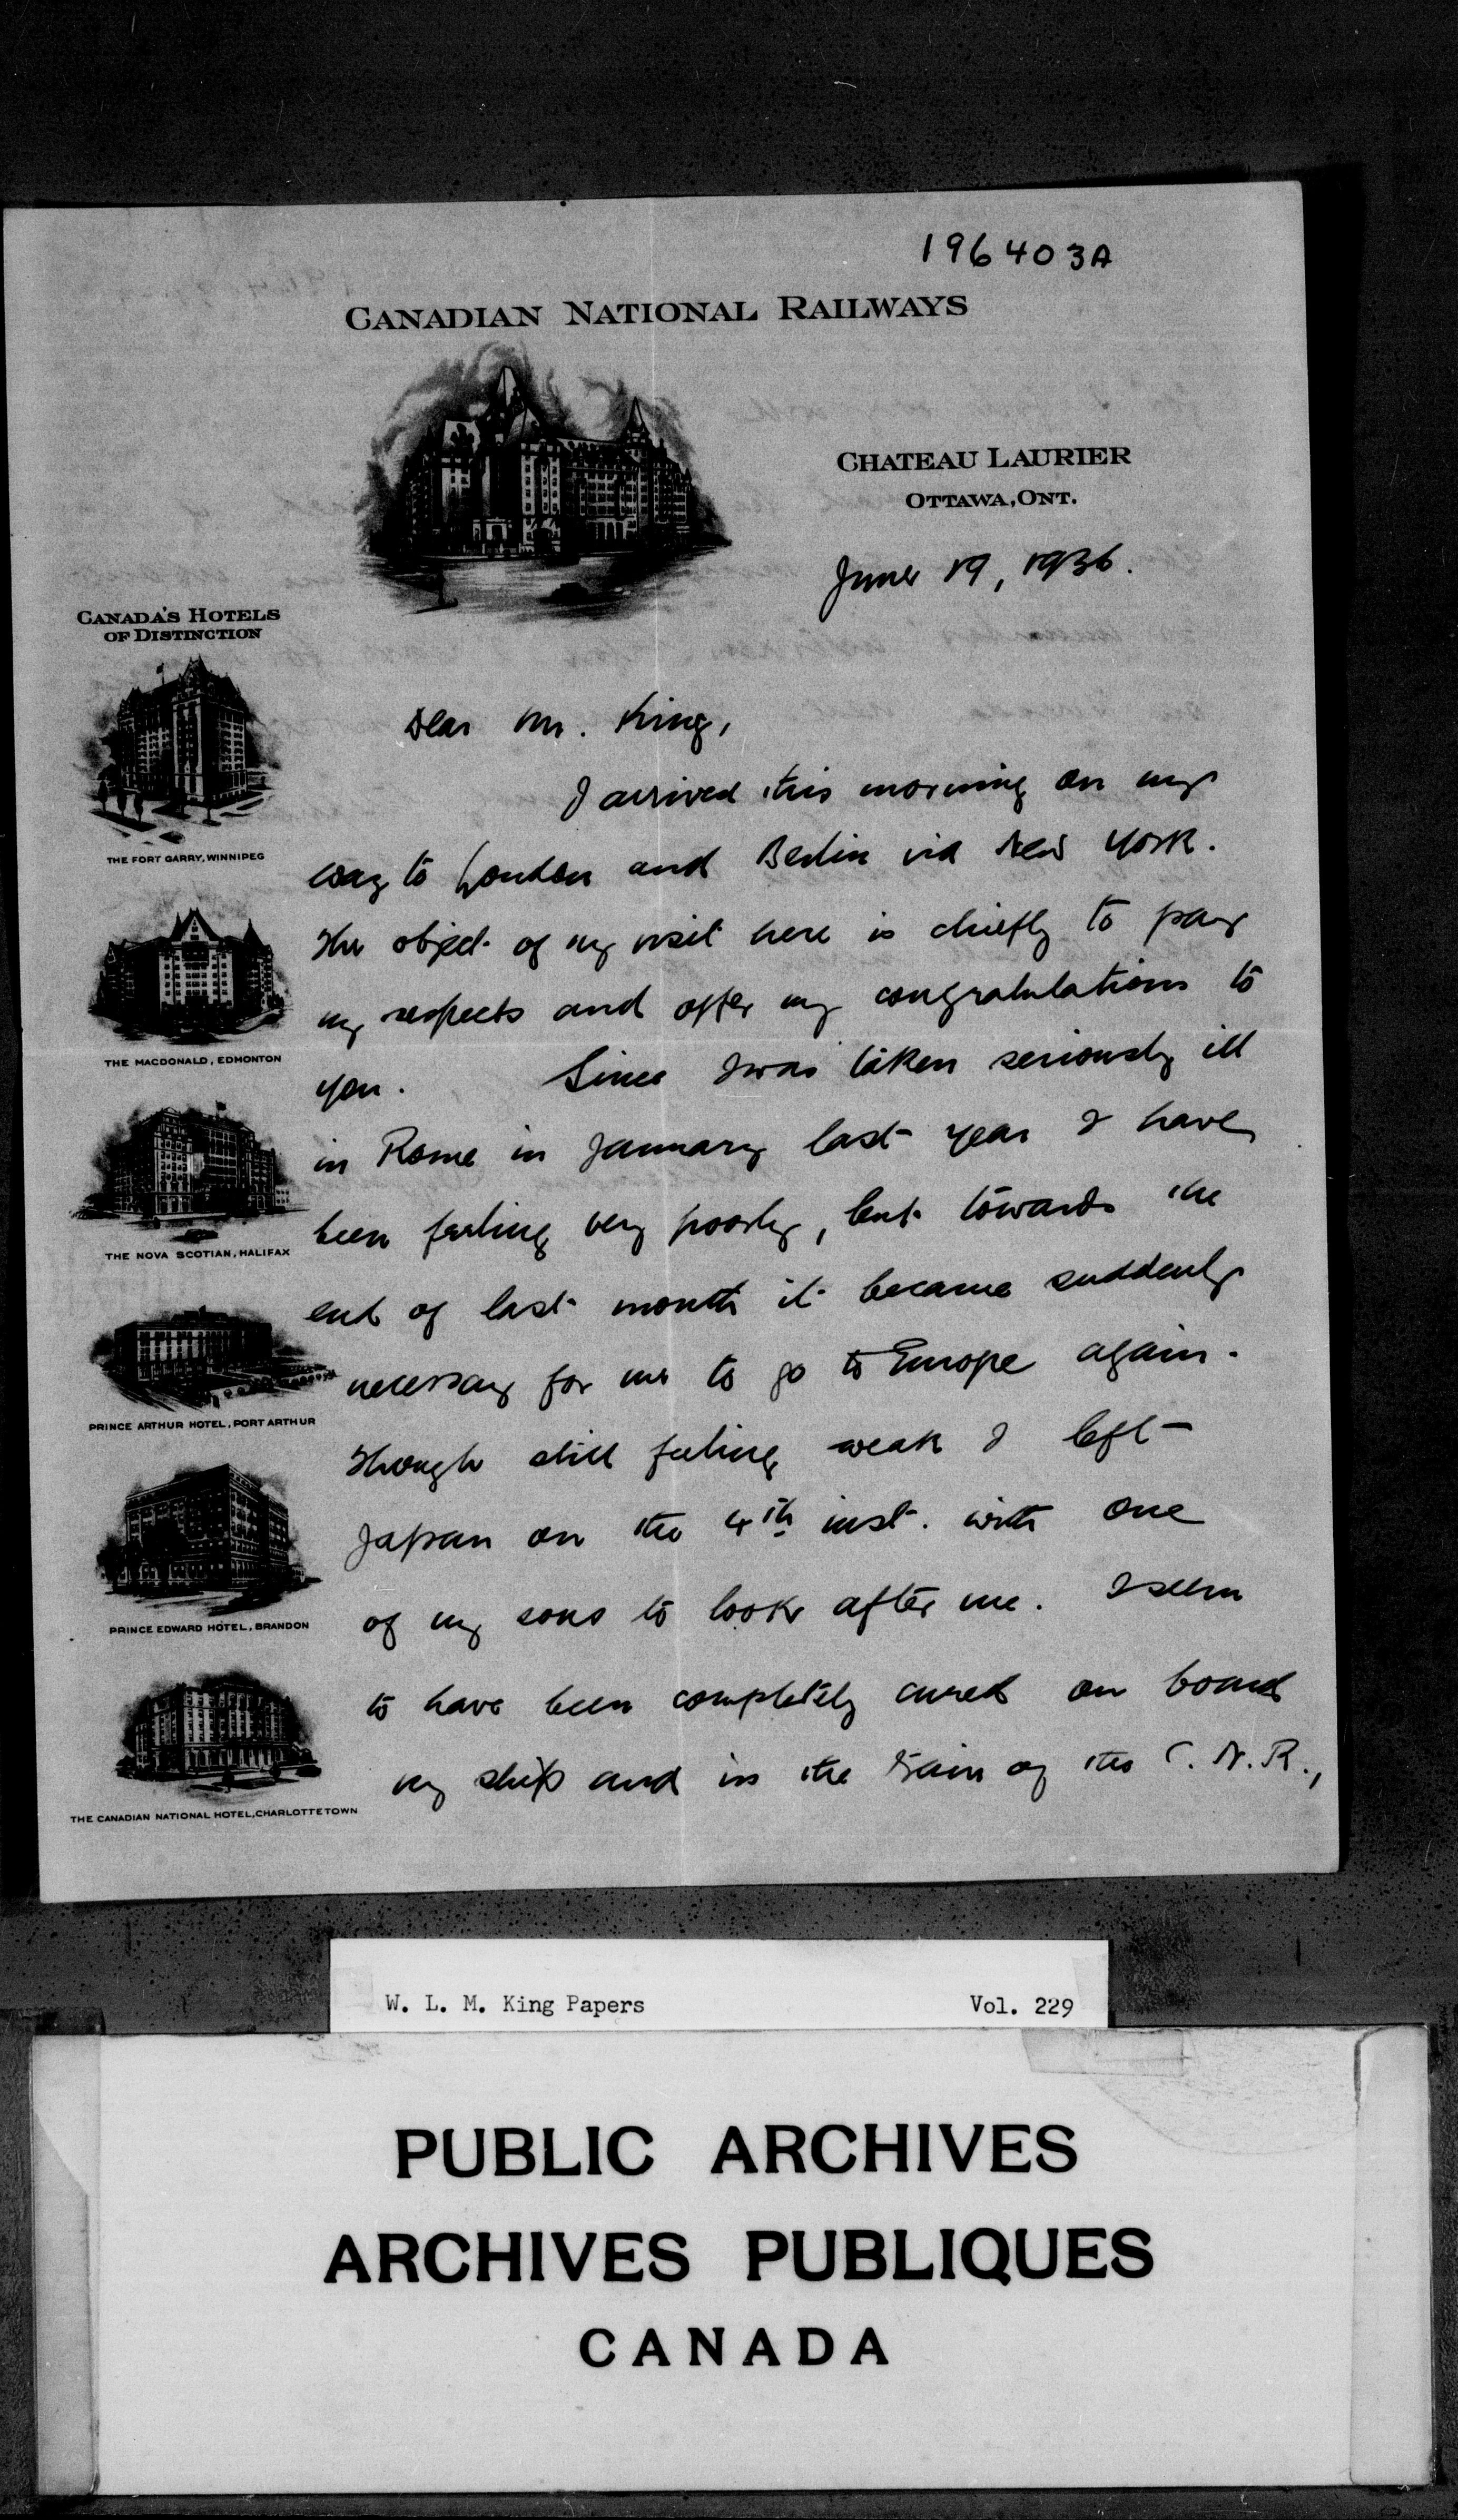 196403A
CANADIAN NATIONAL RAILWAYS
CHATEAU LAURIER
OTTAWA, ONT.
June 19, 1936.
CANADA'S HOTELS
OF DISTINCTION
THE FORT GARRY, WINNIPEG
THE MACDONALD, EDMONTON
THE NOVA SCOTIAN, HALIFAX
PRINCE ARTHUR HOTEL, PORT ARTHUR
PRINCE EDWARD HOTEL, BRANDON
THE CANADIAN NATIONAL HOTEL, CHARLOTTETOWN
Dear Mr. King,
I arrived this morning on my
way to London and Berlin via New York.
The object of my visit here is chiefly to pay
my respects and offer my congratulations to
you. Since I was taken seriously ill
in Rome in January last year I have
been feeling very poorly, but towards the
end of last month it became suddenly
necessary for me to go to Europe again.
Though still feeling weak I left
Japan on the 4th inst. with one
of my sons to look after me. I seem
to have been completely cured on board
my ship and in the train of the C.N.R.,
W. L. M. King Papers Vol. 229
PUBLIC ARCHIVES
ARCHIVES PUBLIQUES
CANADA